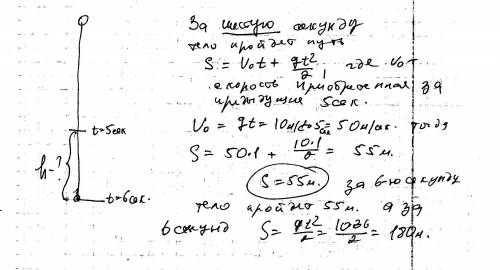 За шестую секунду
тело пройдет путь
S = V₀t + gt²/2, где V₀ -
скорость приобретенная за
предыдущие 5сек.
V₀ = gt = 10м/с·5сек = 50м/сек. тогда
S = 50·1 + 10·1/2 = 55м.
S = 55м. за 6-ю секунду
тело пройдет 55м. а за
6 секунд S = gt²/2 = 10·36/2 = 180м.
t=5сек
h-?
t=6сек.